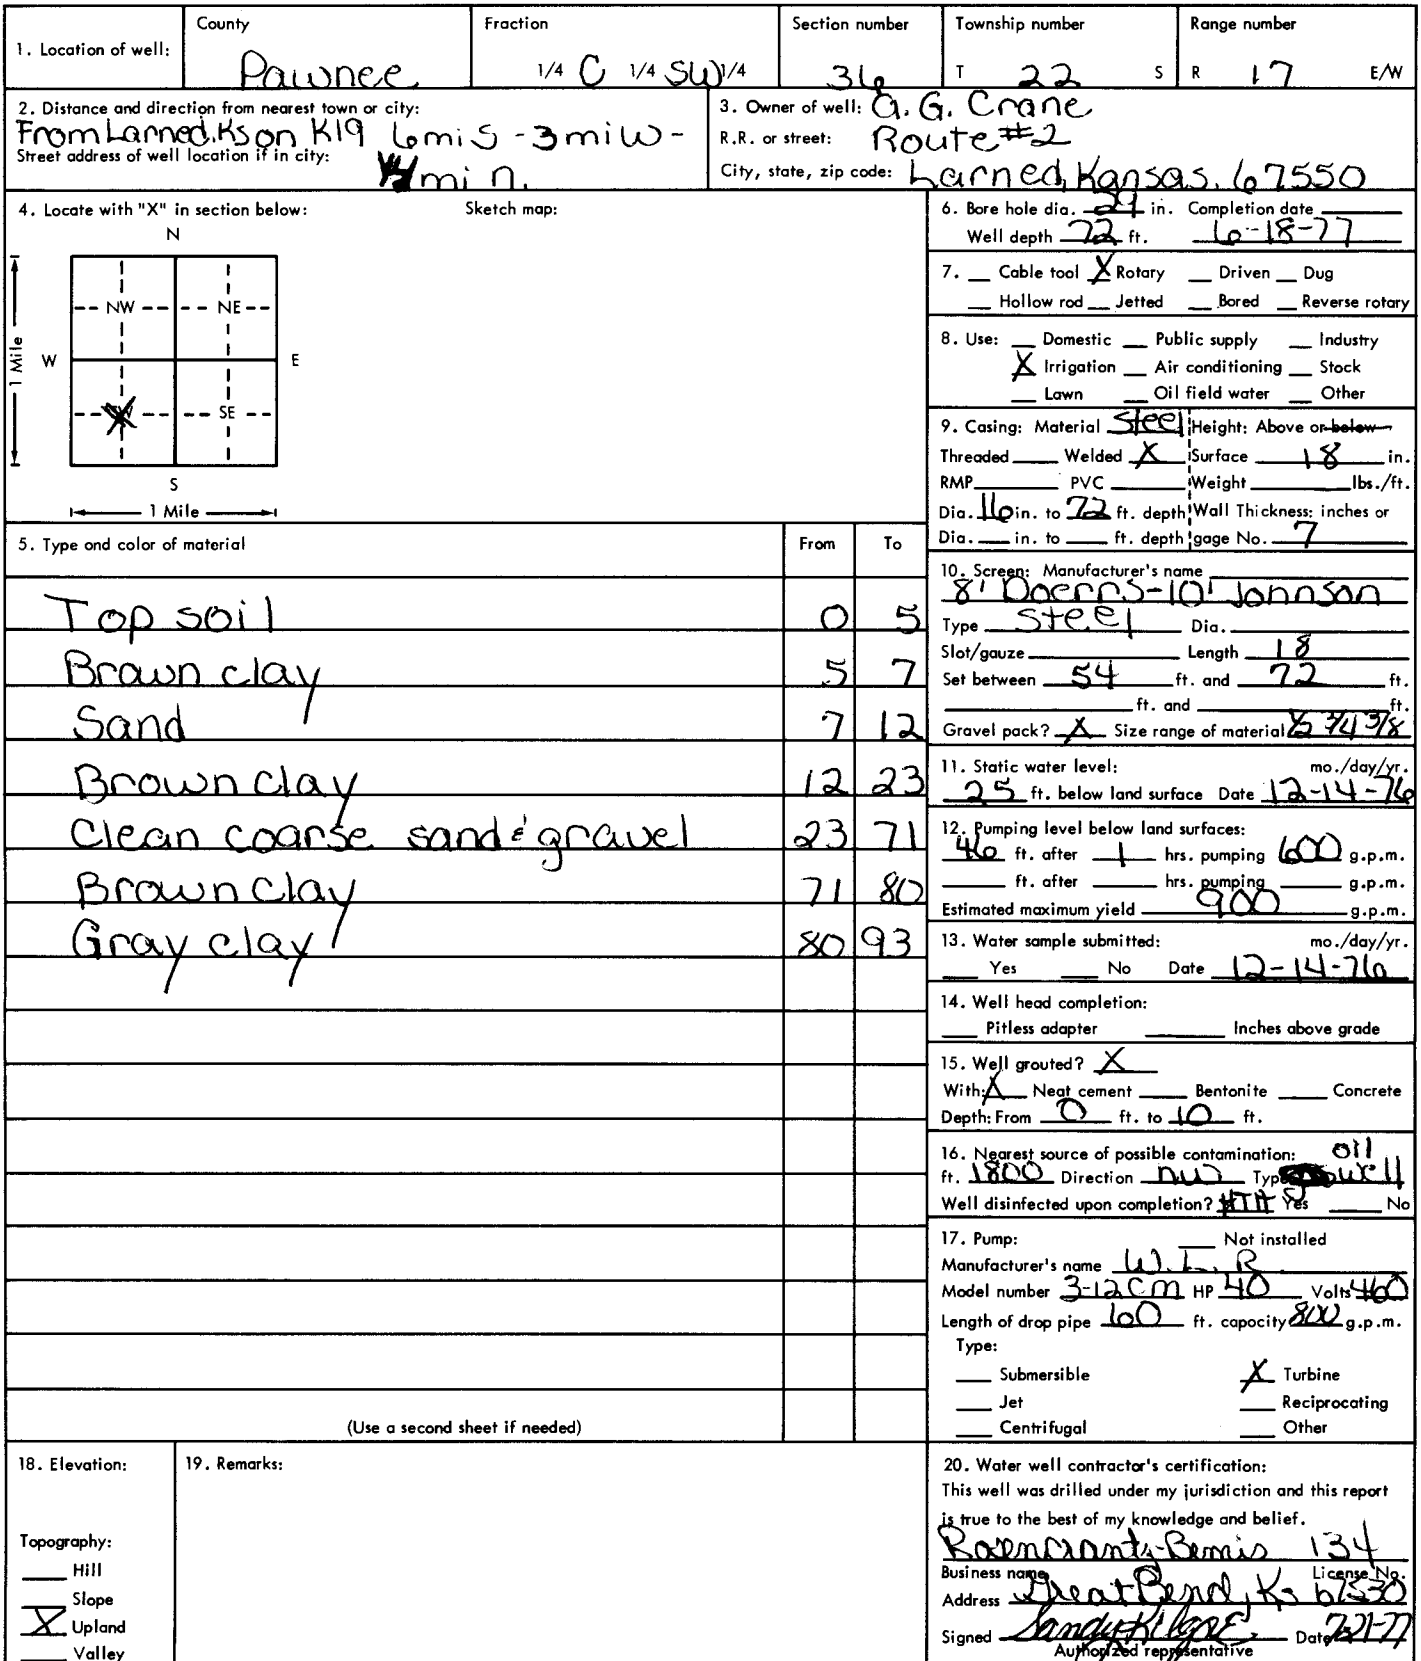 1. Location of well: County Pawnee Fraction 1/4 C 1/4 SW 1/4 Section number 36 Township number T 22 S Range number R 17 E/W
2. Distance and direction from nearest town or city:
From Larned, Ks on K19 6 mi S - 3 mi W -
Street address of well location if in city:
mi n.
3. Owner of well: A. G. Crane
R.R. or street: Route #2
City, state, zip code: Larned, Kansas. 67550
4. Locate with "X" in section below: Sketch map:
N
NW NE
W E
1 Mile
X SE
S
1 Mile
5. Type and color of material From To
Top soil 0 5
Brown clay 5 7
Sand 7 12
Brown clay 12 23
Clean coarse sand & gravel 23 71
Brown clay 71 80
Gray clay 80 93
(Use a second sheet if needed)
6. Bore hole dia. in. Completion date
Well depth 72 ft. 6-18-77
7. Cable tool X Rotary Driven Dug
Hollow rod Jetted Bored Reverse rotary
8. Use: Domestic Public supply Industry
X Irrigation Air conditioning Stock
Lawn Oil field water Other
9. Casing: Material Steel Height: Above or below
Threaded Welded X Surface 18 in.
RMP PVC Weight lbs./ft.
Dia. 16 in. to 72 ft. depth Wall Thickness: inches or
Dia. in. to ft. depth gage No. 7
10. Screen: Manufacturer's name
8' Doerrs-10' Johnson
Type Steel Dia.
Slot/gauze Length 18
Set between 54 ft. and 72 ft.
ft. and ft.
Gravel pack? X Size range of material 1/2 3/4 3/8
11. Static water level: mo./day/yr.
25 ft. below land surface Date 12-14-76
12. Pumping level below land surfaces:
46 ft. after 1 hrs. pumping 600 g.p.m.
ft. after hrs. pumping g.p.m.
Estimated maximum yield 900 g.p.m.
13. Water sample submitted: mo./day/yr.
Yes No Date 12-14-76
14. Well head completion:
Pitless adapter Inches above grade
15. Well grouted? X
With: X Neat cement Bentonite Concrete
Depth: From 0 ft. to 10 ft.
16. Nearest source of possible contamination: oil
ft. 1800 Direction nw Type well
Well disinfected upon completion? HTH Yes No
17. Pump: Not installed
Manufacturer's name W. L. R.
Model number 3-12CM HP 40 Volts 460
Length of drop pipe 60 ft. capacity 800 g.p.m.
Type:
Submersible X Turbine
Jet Reciprocating
Centrifugal Other
18. Elevation:
Topography:
Hill
Slope
X Upland
Valley
19. Remarks:
20. Water well contractor's certification:
This well was drilled under my jurisdiction and this report
is true to the best of my knowledge and belief.
Rosencrantz-Bemis 134
Business name License No.
Address Great Bend, Ks 67530
Signed Sandy Kilgore Date 7-21-77
Authorized representative